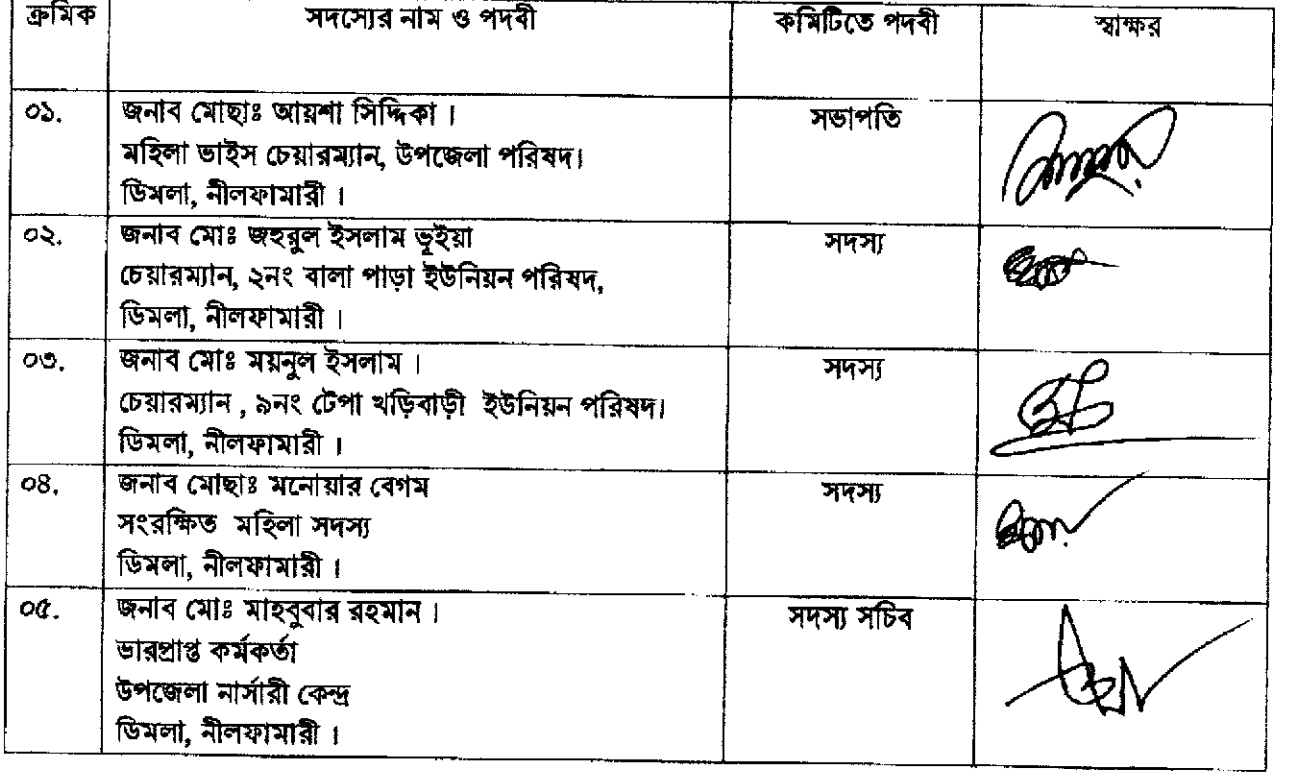 ক্রমিক সদস্যের নাম ও পদবী কমিটিতে পদবী স্বাক্ষর
০১. জনাব মোছাঃ আয়শা সিদ্দিকা । সভাপতি
মহিলা ভাইস চেয়ারম্যান, উপজেলা পরিষদ।
ডিমলা, নীলফামারী ।
০২. জনাব মোঃ জহুরুল ইসলাম ভূইয়া সদস্য
চেয়ারম্যান, ২নং বালা পাড়া ইউনিয়ন পরিষদ,
ডিমলা, নীলফামারী ।
০৩. জনাব মোঃ ময়নুল ইসলাম । সদস্য
চেয়ারম্যান , ৯নং টেপা খড়িবাড়ী ইউনিয়ন পরিষদ।
ডিমলা, নীলফামারী ।
০৪. জনাব মোছাঃ মনোয়ার বেগম সদস্য
সংরক্ষিত মহিলা সদস্য
ডিমলা, নীলফামারী ।
০৫. জনাব মোঃ মাহবুবার রহমান । সদস্য সচিব
ভারপ্রাপ্ত কর্মকর্তা
উপজেলা নার্সারী কেন্দ্র
ডিমলা, নীলফামারী ।